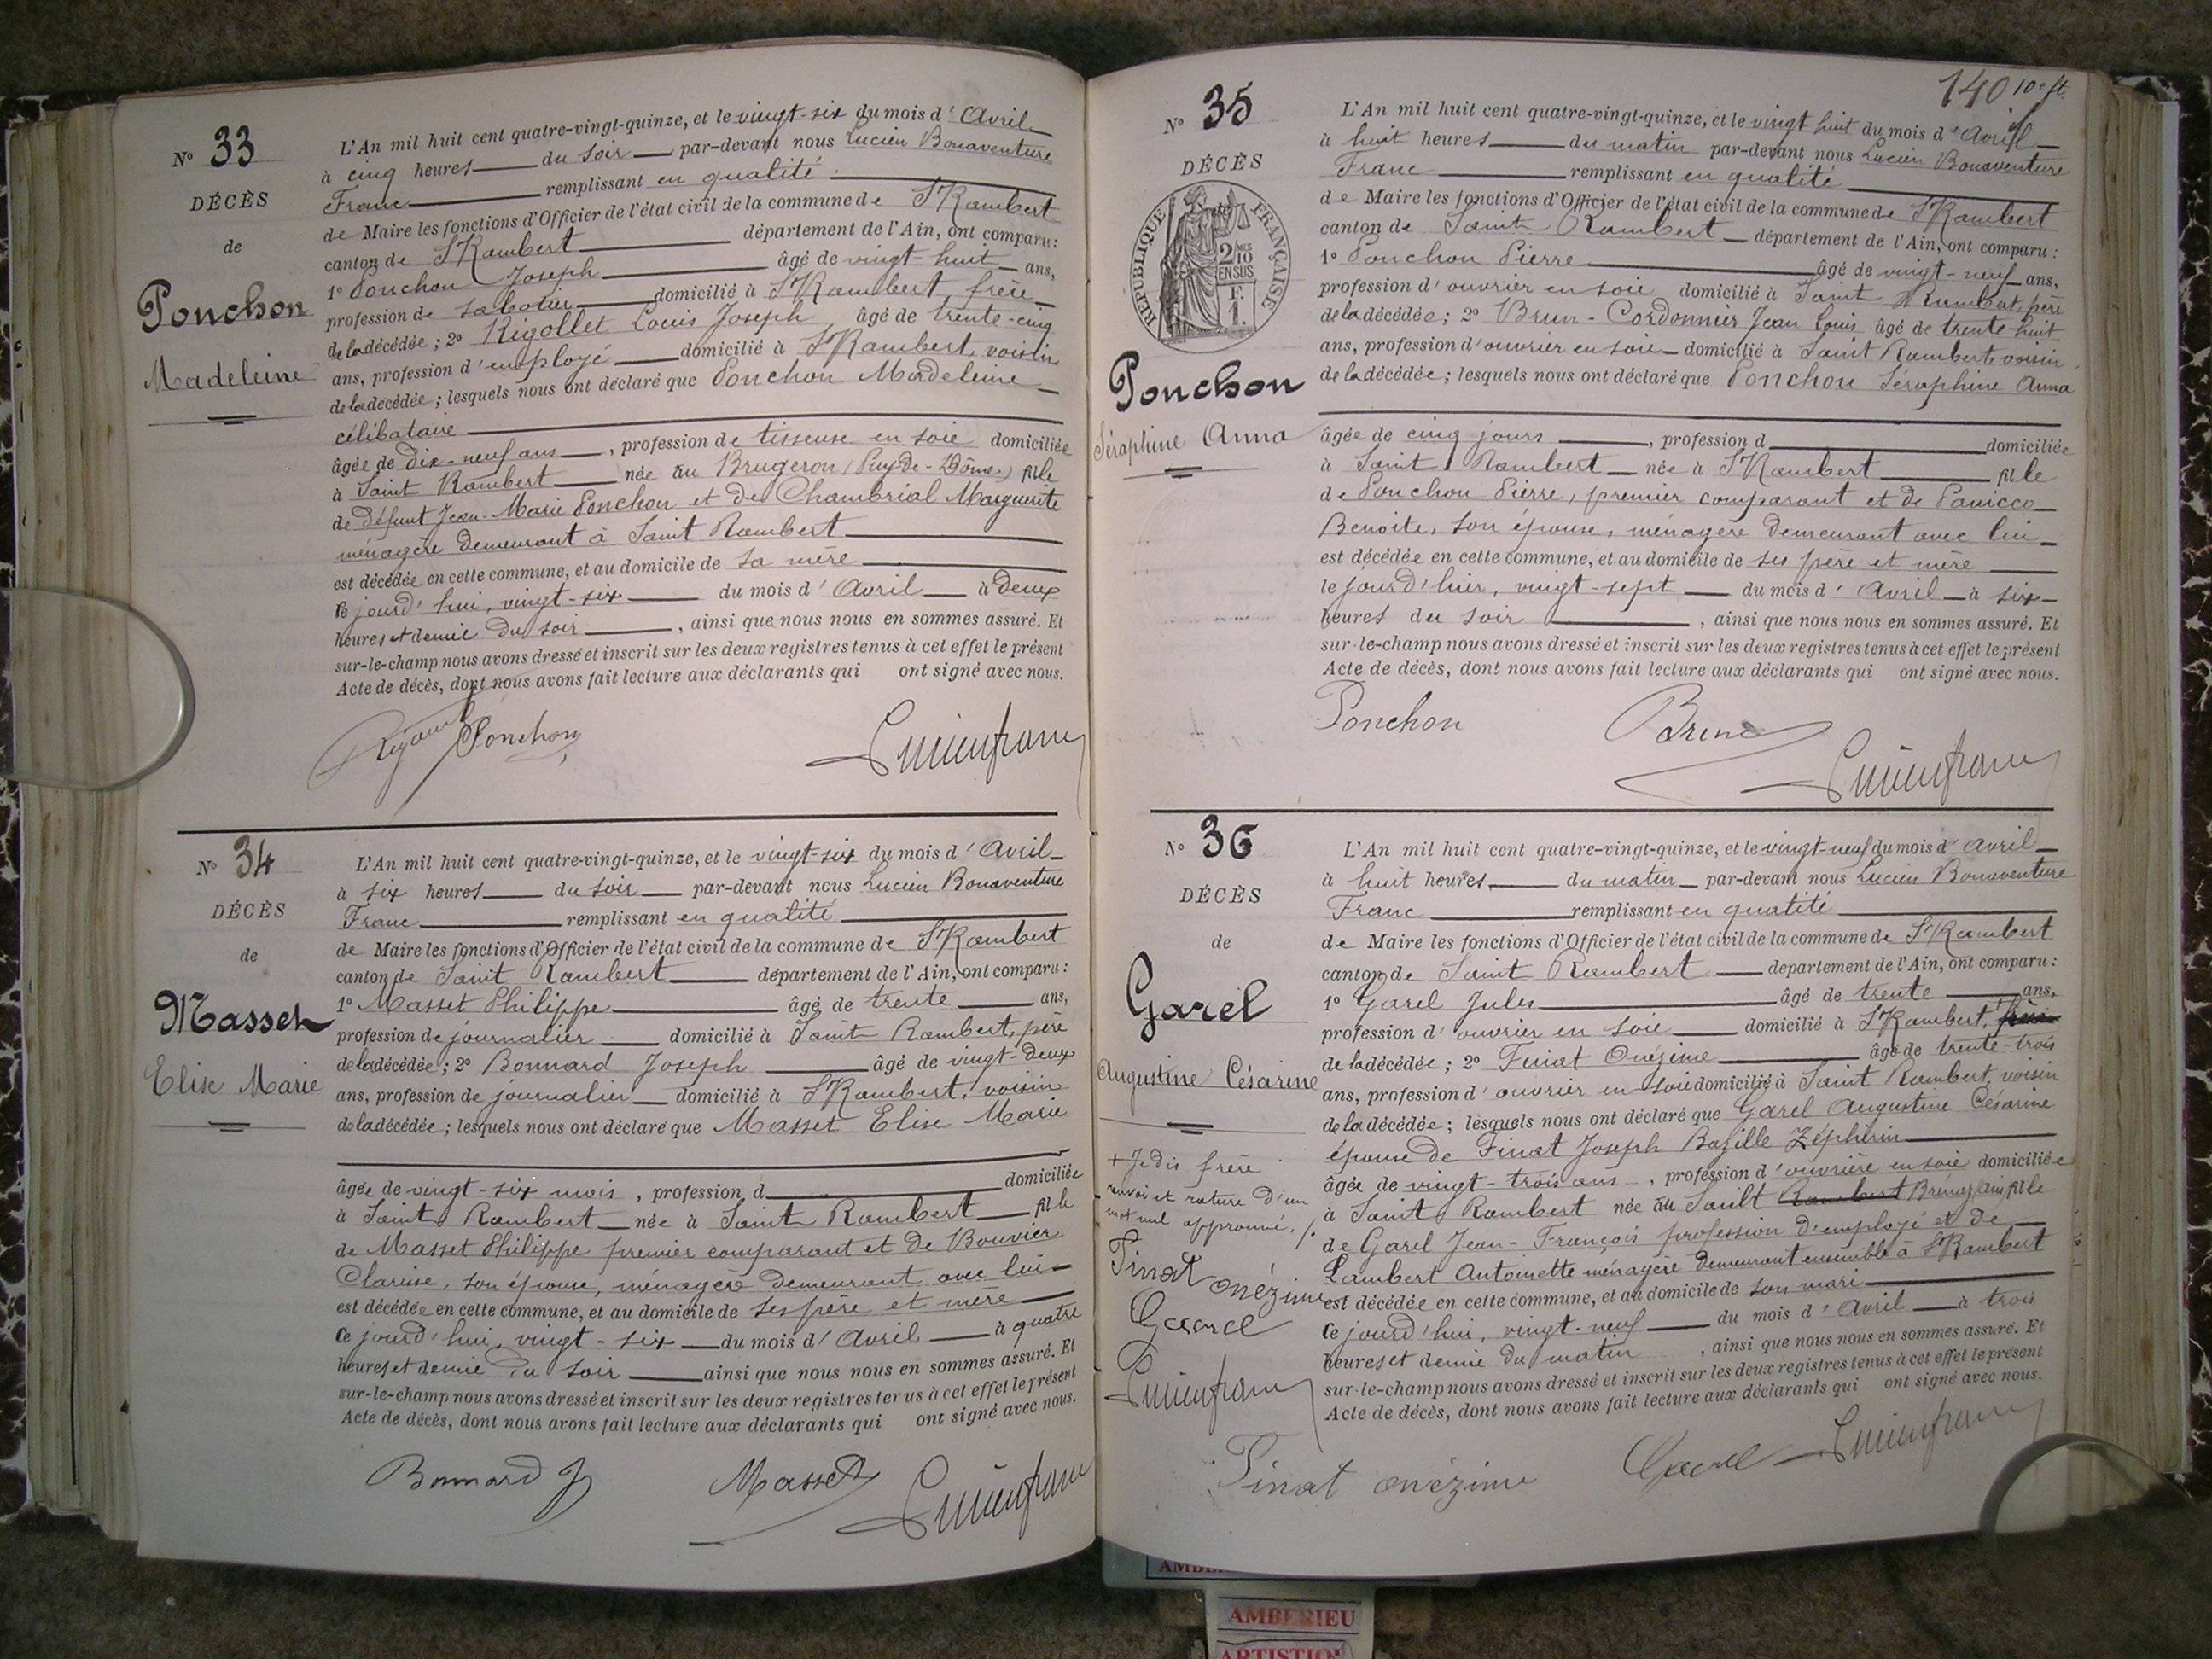 N° 33
DÉCÈS
de
Ponchon
Madeleine
L'An mil huit cent quatre-vingt-quinze, et le vingt-six du mois d'Avril
à cinq heures du soir par-devant nous Lucien Bonaventure
Franc remplissant en qualité
de Maire les fonctions d'Officier de l'état civil de la commune de St Rambert
canton de St Rambert département de l'Ain, ont comparu:
1° Ponchon Joseph âgé de vingt-huit ans,
profession de sabotier domicilié à St Rambert, frère
de la décédée; 2° Rigollet Louis Joseph âgé de trente-cinq
ans, profession d'employé domicilié à St Rambert, voisin
de la décédée; lesquels nous ont déclaré que Ponchon Madeleine
célibataire
âgée de dix-neuf ans, profession de tisseuse en soie domiciliée
à Saint Rambert née au Brugeron (Puy-de-Dôme) fille
de défunt Jean-Marie Ponchon et de Chambrial Marguerite
ménagère demeurant à Saint Rambert
est décédée en cette commune, et au domicile de sa mère
ce jourd'hui, vingt-six du mois d'Avril à deux
heures et demie du soir, ainsi que nous nous en sommes assuré. Et
sur-le-champ nous avons dressé et inscrit sur les deux registres tenus à cet effet le présent
Acte de décès, dont nous avons fait lecture aux déclarants qui ont signé avec nous.
Ponchon Lucien franc
N° 34
DÉCÈS
de
Masset
Elise Marie
L'An mil huit cent quatre-vingt-quinze, et le vingt-six du mois d'Avril
à six heures du soir par-devant nous Lucien Bonaventure
Franc remplissant en qualité
de Maire les fonctions d'Officier de l'état civil de la commune de St Rambert
canton de Saint Rambert département de l'Ain, ont comparu:
1° Masset Philippe âgé de trente ans,
profession de journalier domicilié à Saint Rambert, père
de la décédée; 2° Bonnard Joseph âgé de vingt-deux
ans, profession de journalier domicilié à St Rambert, voisin
de la décédée; lesquels nous ont déclaré que Masset Elise Marie
âgée de vingt-six mois, profession d domiciliée
à Saint Rambert née à Saint Rambert fille
de Masset Philippe premier comparant et de Bouvier
Clarisse, son épouse, ménagère demeurant avec lui
est décédée en cette commune, et au domicile de ses père et mère
ce jourd'hui, vingt-six du mois d'Avril à quatre
heures et demie du soir ainsi que nous nous en sommes assuré. Et
sur-le-champ nous avons dressé et inscrit sur les deux registres tenus à cet effet le présent
Acte de décès, dont nous avons fait lecture aux déclarants qui ont signé avec nous.
Bonnard J Masset Lucien franc
140
N° 35
DÉCÈS
RÉPUBLIQUE FRANÇAISE
2 MES
10
EN SUS
F.
1.
Ponchon
Séraphine Anna
L'An mil huit cent quatre-vingt-quinze, et le vingt huit du mois d'Avril
à huit heures du matin par-devant nous Lucien Bonaventure
Franc remplissant en qualité
de Maire les fonctions d'Officier de l'état civil de la commune de St Rambert
canton de Saint Rambert département de l'Ain, ont comparu:
1° Ponchon Pierre âgé de vingt-neuf ans,
profession d'ouvrier en soie domicilié à Saint Rambert, père
de la décédée; 2° Brun-Cordonnier Jean Louis âgé de trente-huit
ans, profession d'ouvrier en soie domicilié à Saint Rambert voisin
de la décédée; lesquels nous ont déclaré que Ponchon Séraphine Anna
âgée de cinq jours, profession d domiciliée
à Saint Rambert née à St Rambert fille
de Ponchon Pierre, premier comparant et de Panicco
Benoite, son épouse, ménagère demeurant avec lui
est décédée en cette commune, et au domicile de ses père et mère
le jourd'hier, vingt-sept du mois d'Avril à six
heures du soir, ainsi que nous nous en sommes assuré. Et
sur-le-champ nous avons dressé et inscrit sur les deux registres tenus à cet effet le présent
Acte de décès, dont nous avons fait lecture aux déclarants qui ont signé avec nous.
Ponchon Brun Lucien franc
N° 36
DÉCÈS
de
Garel
Augustine Césarine
+ Je dis frère
renvoi et rature d'un
mot nul approuvé./.
Finat
onézime
Garel
Lucien franc
L'An mil huit cent quatre-vingt-quinze, et le vingt-neuf du mois d'Avril
à huit heures du matin par-devant nous Lucien Bonaventure
Franc remplissant en qualité
de Maire les fonctions d'Officier de l'état civil de la commune de St Rambert
canton de Saint Rambert département de l'Ain, ont comparu:
1° Garel Jules âgé de trente ans,
profession d'ouvrier en soie domicilié à St Rambert,
de la décédée; 2° Finat Onézime âgé de trente-trois
ans, profession d'ouvrier en soie domicilié à Saint Rambert, voisin
de la décédée; lesquels nous ont déclaré que Garel Augustine Césarine
épouse de Finat Joseph Bazille Zéphirin
âgée de vingt-trois ans, profession d'ouvrière en soie domiciliée
à Saint Rambert née au Sault Rambert Brénaz (Ain) fille
de Garel Jean-François profession d'employé et de
Lambert Antoinette ménagère demeurant ensemble à St Rambert
est décédée en cette commune, et au domicile de son mari
ce jourd'hui, vingt-neuf du mois d'Avril à trois
heures et demie du matin, ainsi que nous nous en sommes assuré. Et
sur-le-champ nous avons dressé et inscrit sur les deux registres tenus à cet effet le présent
Acte de décès, dont nous avons fait lecture aux déclarants qui ont signé avec nous.
Finat onézime Garel Lucien franc
AMBERIEU